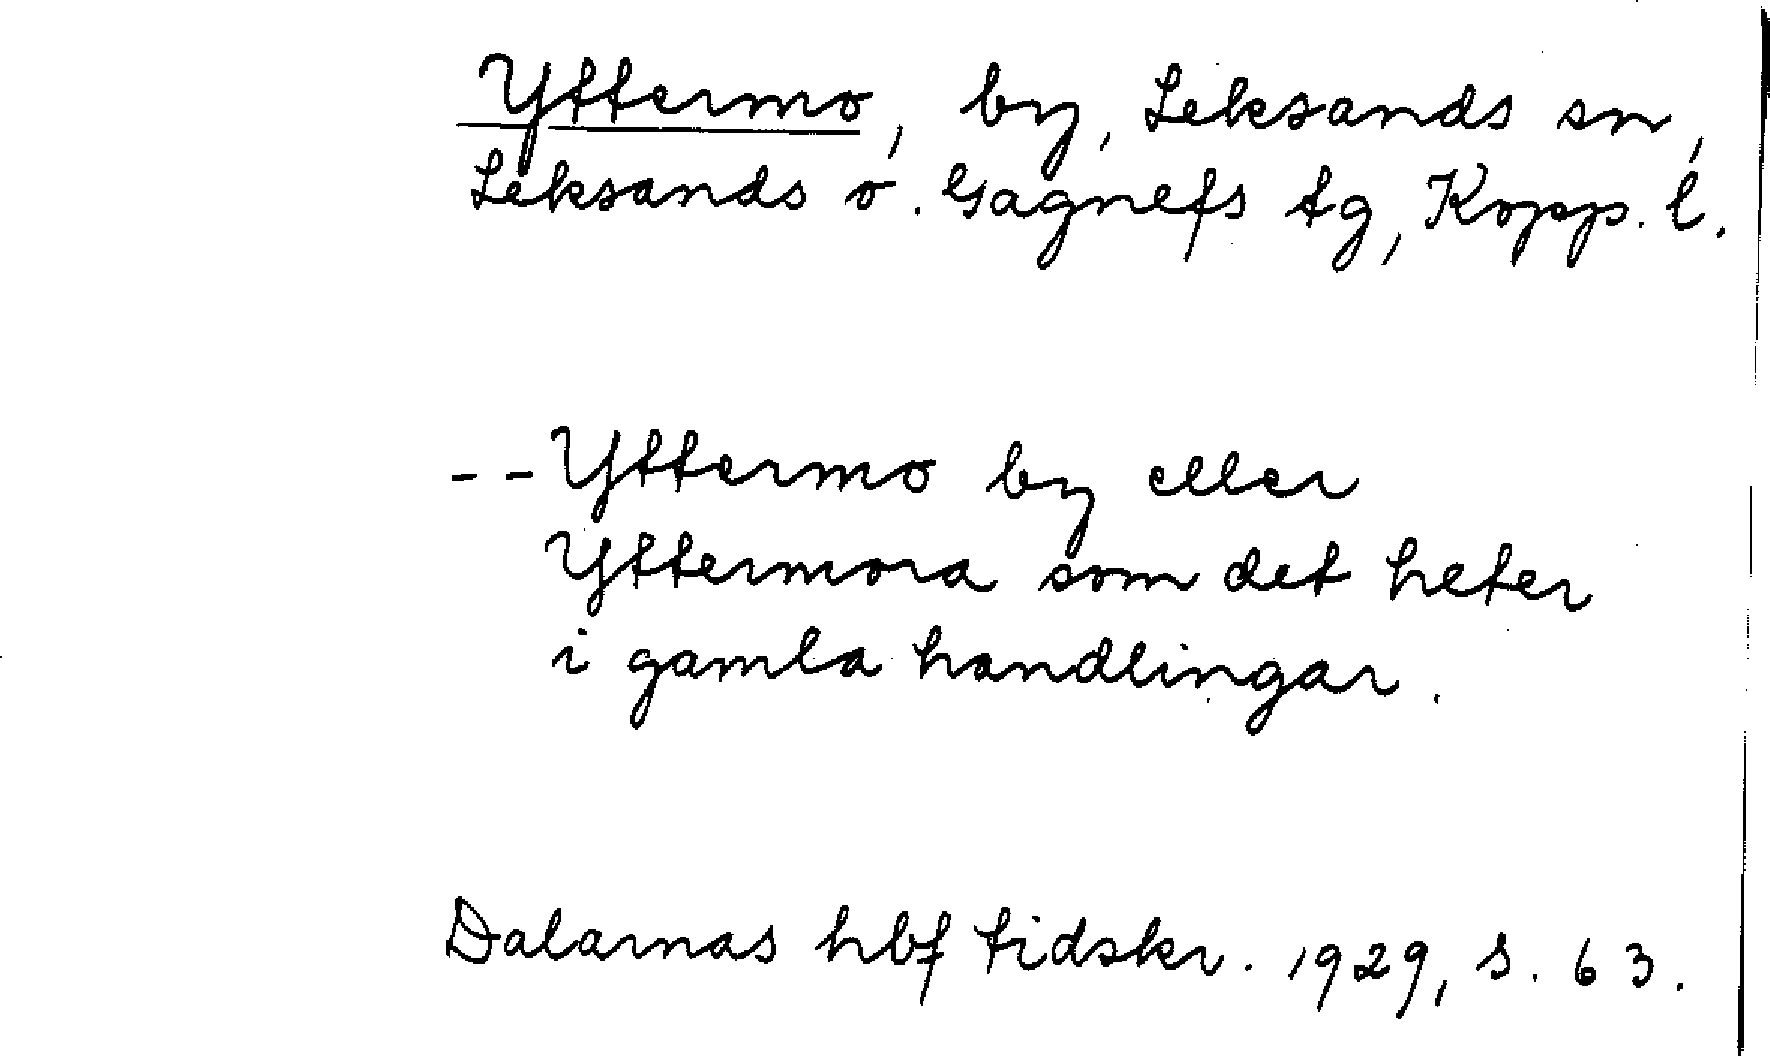 Yttermo, by, Leksands sn,
Leksands o. Gagnefs tg, Kopp. l.
-- Yttermo by eller
Yttermora som det heter
i gamla handlingar.
Dalarnas hbf tidskr. 1929, s. 63.